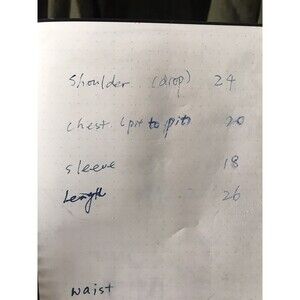 Shoulder (drop) 24
chest (pit to pit) 20
sleeve 18
Length 26
waist